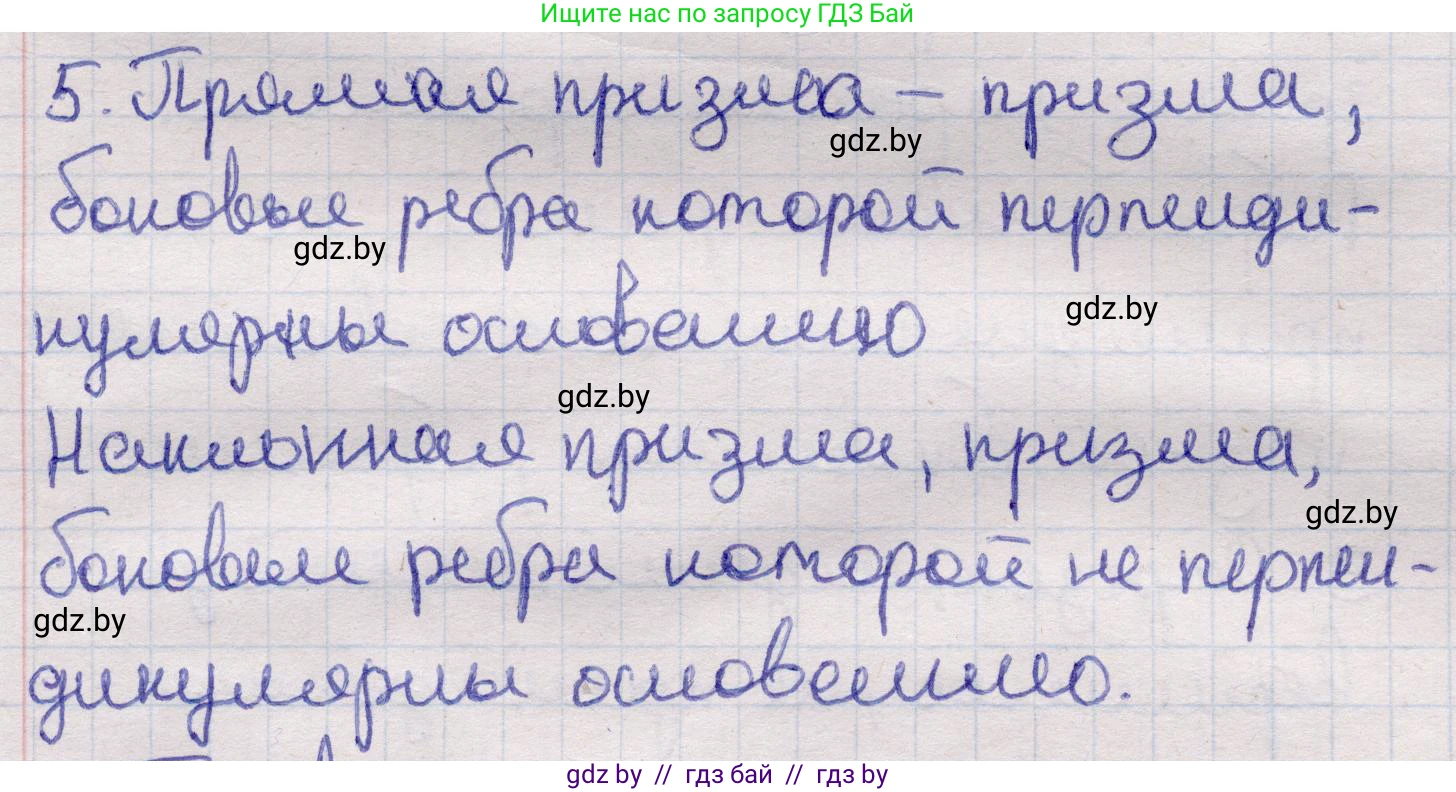 Ищите нас по запросу ГДЗ Бай
5. Прямая призма – призма,
gdz.by
боковые ребра которой перпенди-
gdz.by
кулярны основанию
gdz.by
gdz.by
Наклонная призма, призма,
gdz.by
боковые ребра которой не перпен-
gdz.by
дикулярны основанию.
gdz by // гдз бай // гдз by